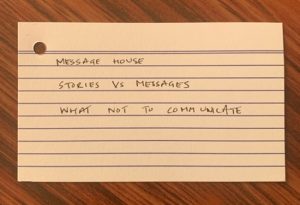 MESSAGE HOUSE
STORIES VS MESSAGES
WHAT NOT TO COMMUNICATE